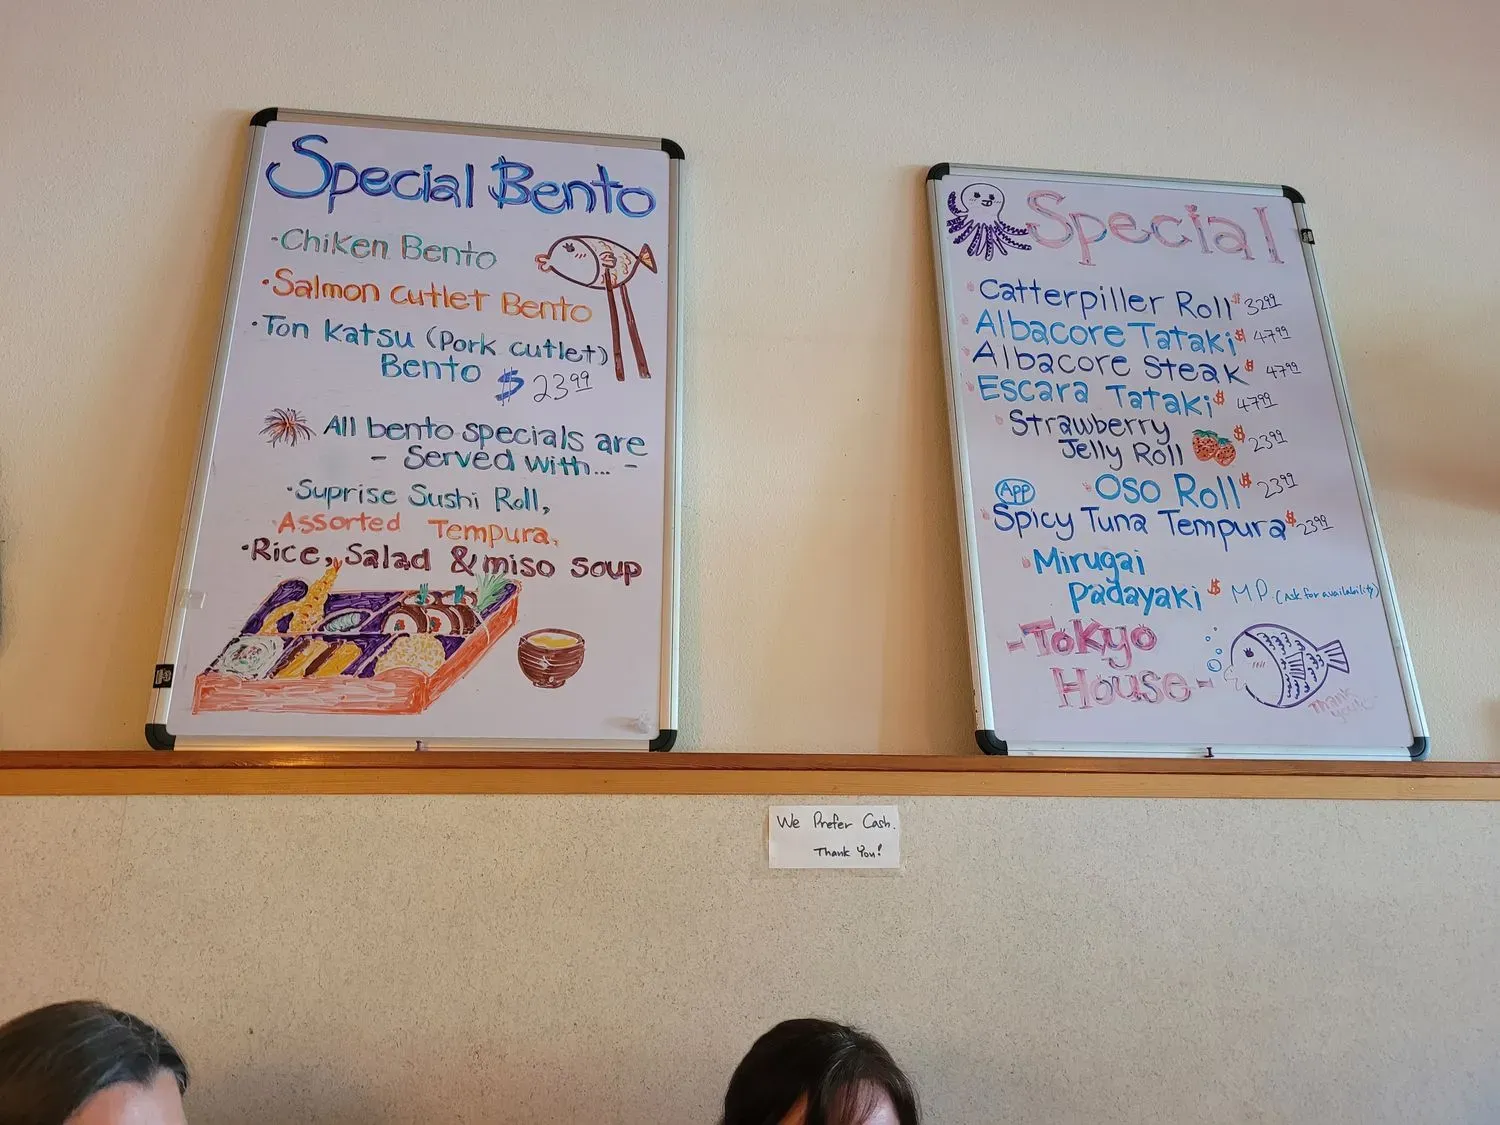 Special Bento
·Chiken Bento
·Salmon cutlet Bento
·Ton Katsu (Pork cutlet)
Bento $23.99
All bento specials are
- Served with... -
·Suprise Sushi Roll,
·Assorted Tempura,
·Rice, Salad & miso soup
Special
·Catterpiller Roll $32.99
·Albacore Tataki $47.99
·Albacore Steak $47.99
·Escara Tataki $47.99
·Strawberry
Jelly Roll $23.99
App
·Oso Roll $23.99
·Spicy Tuna Tempura $23.99
·Mirugai
Padayaki $ M.P. (Ask for availability)
-Tokyo
House-
Thank
you!
We Prefer Cash.
Thank You!